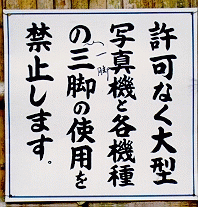 許可なく大型
写真機と各機種
の三脚の使用を
禁止します。